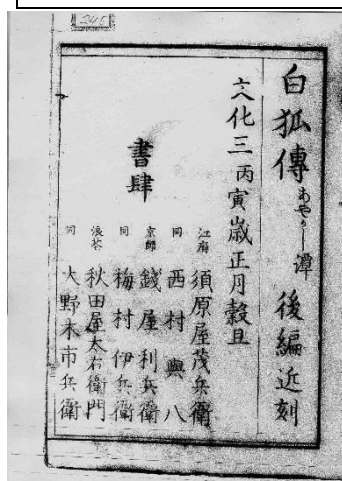 245
白狐傳あやかし潭 後編近刻
文化三丙寅歳正月穀旦
書肆
江府 須原屋茂兵衛
同 西村與八
京師 錢屋利兵衛
同 梅村伊兵衛
浪花 秋田屋太右衛門
同 大野木市兵衛